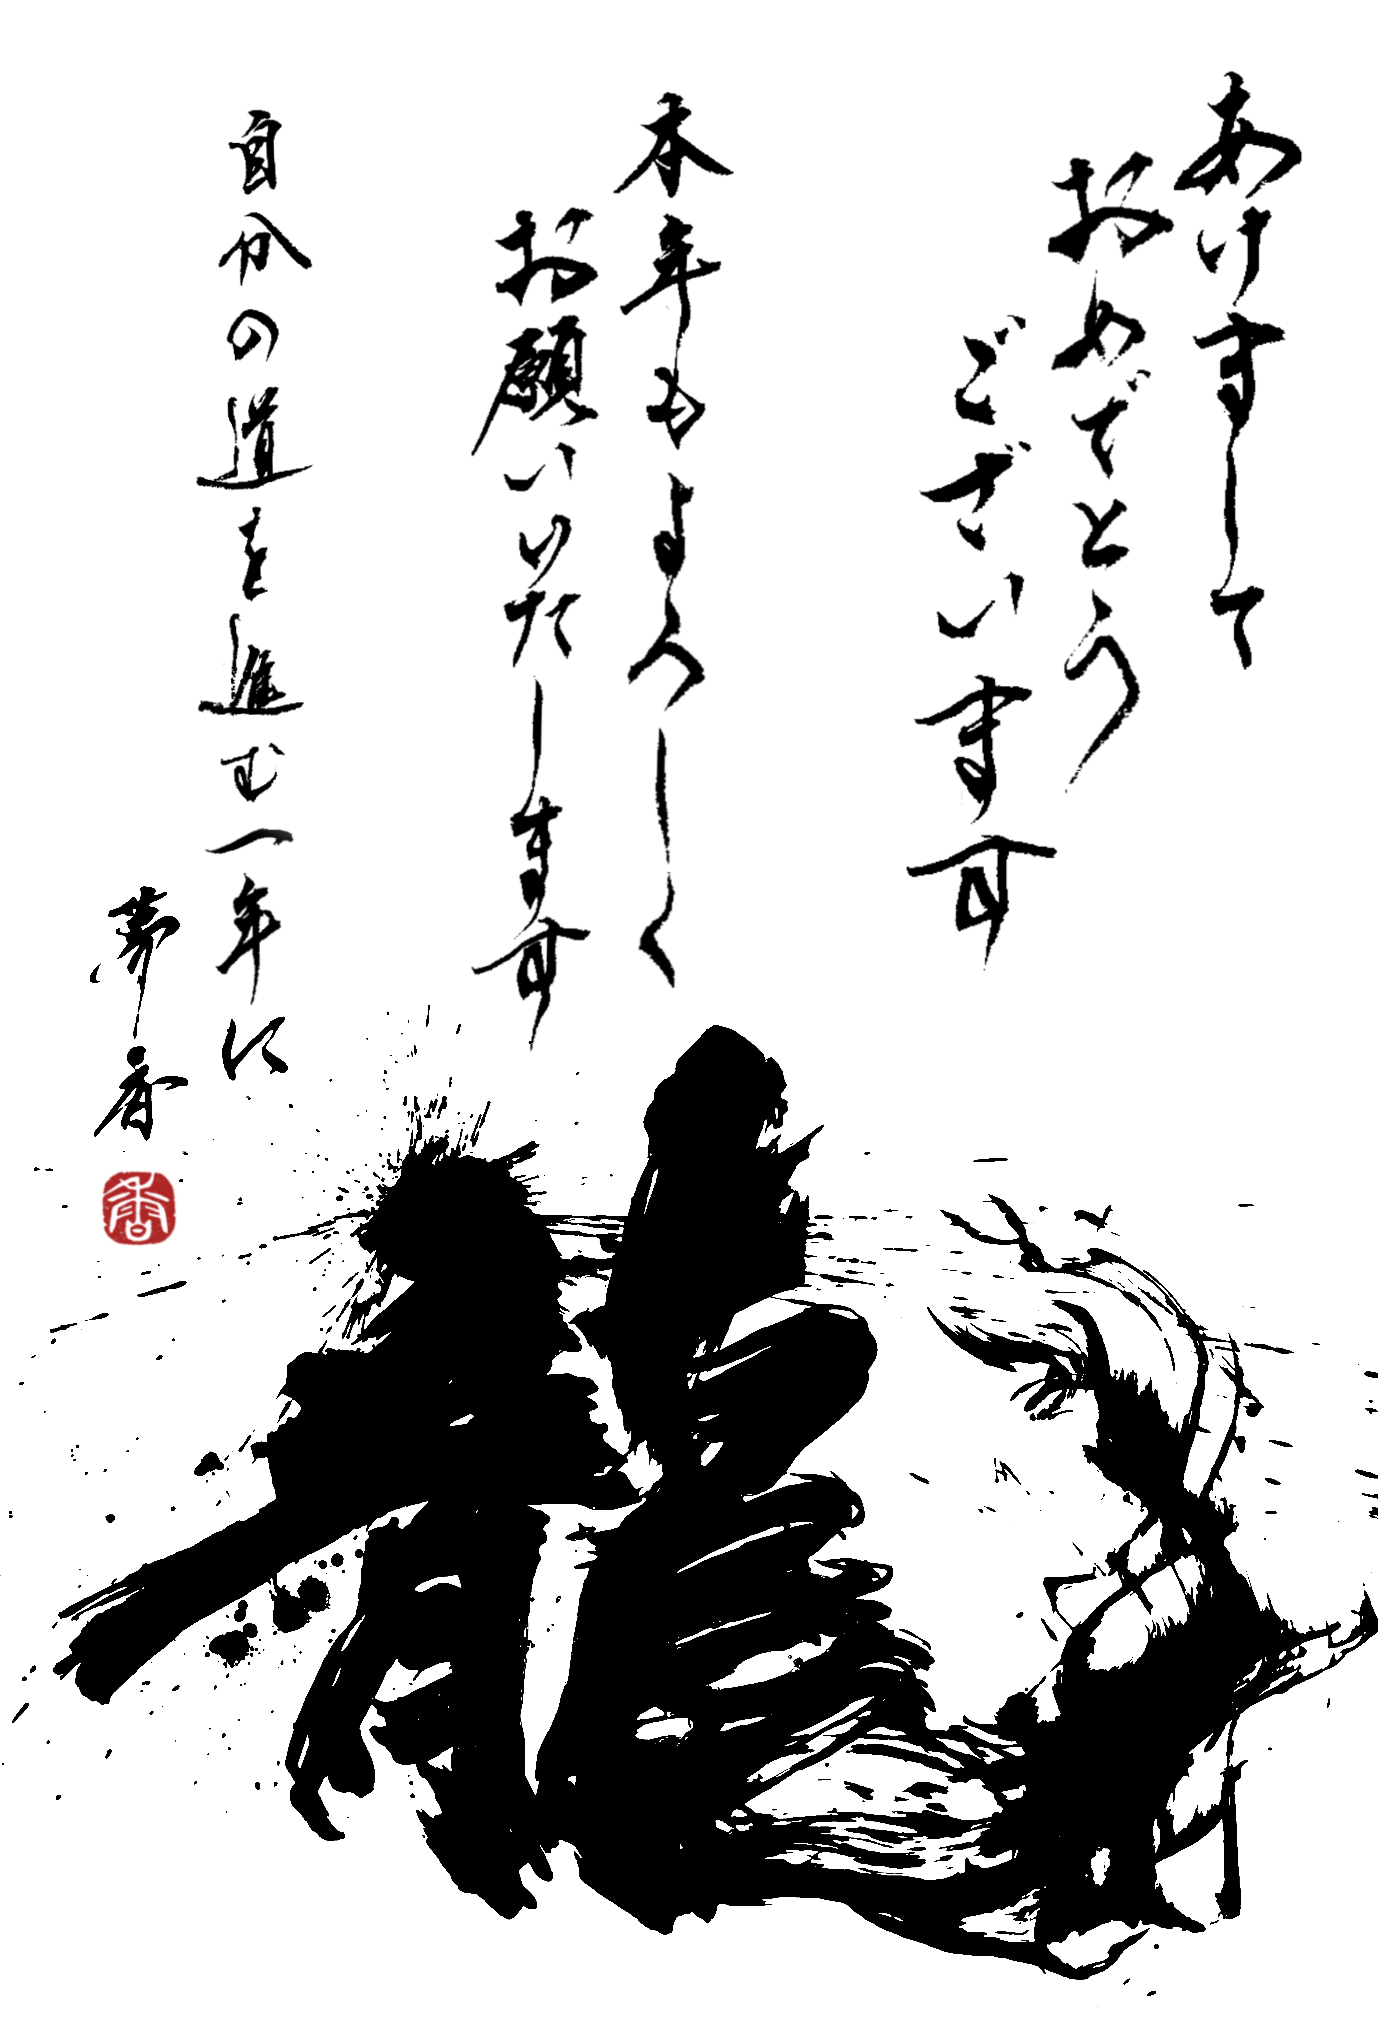 あけまして
おめでとう
ございます
本年もよろしく
お願いいたします
自分の道を進む一年に
夢香
香
龍